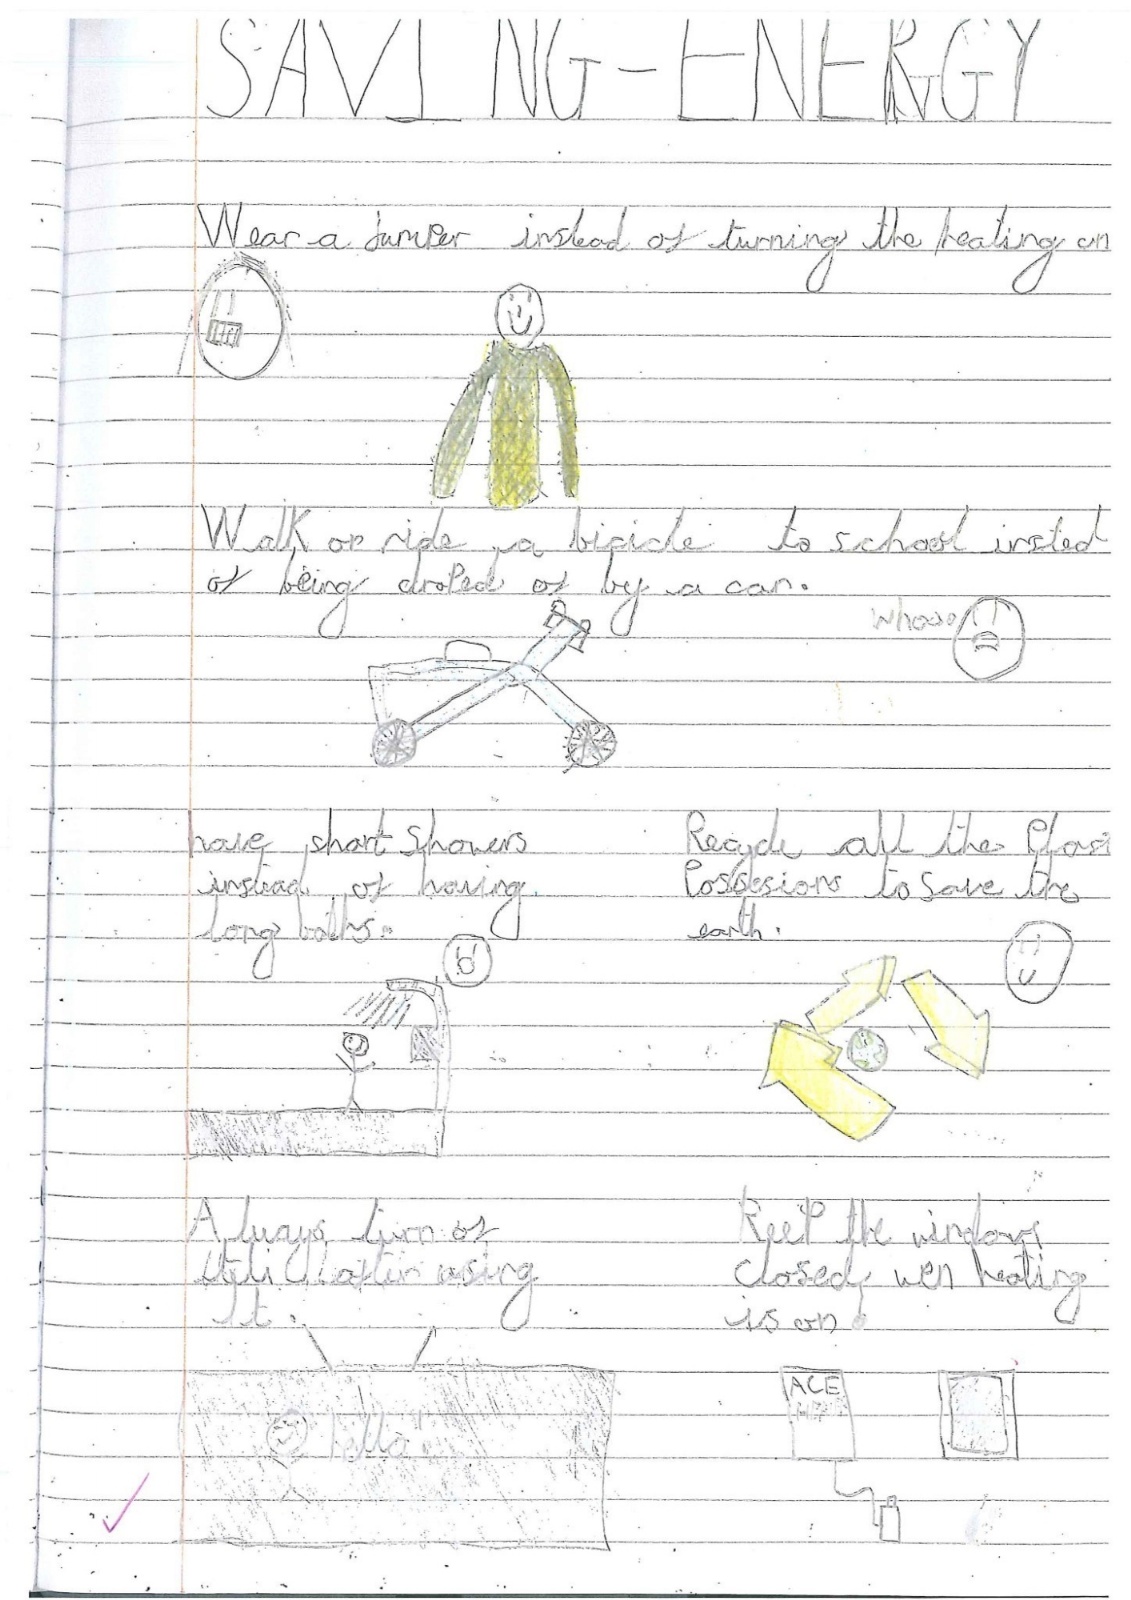 SAVING-ENERGY
Wear a jumper instead of turning the heating on
Walk or ride a bicicle to school insted
of being droped of by a car.
Whooo
have short showers
instead of having
long baths.
Recycle all the Plasi
Possesions to save the
earth.
Always turn of
after using
It.
Keep the windows
closed wen heating
is on
ACE
hello